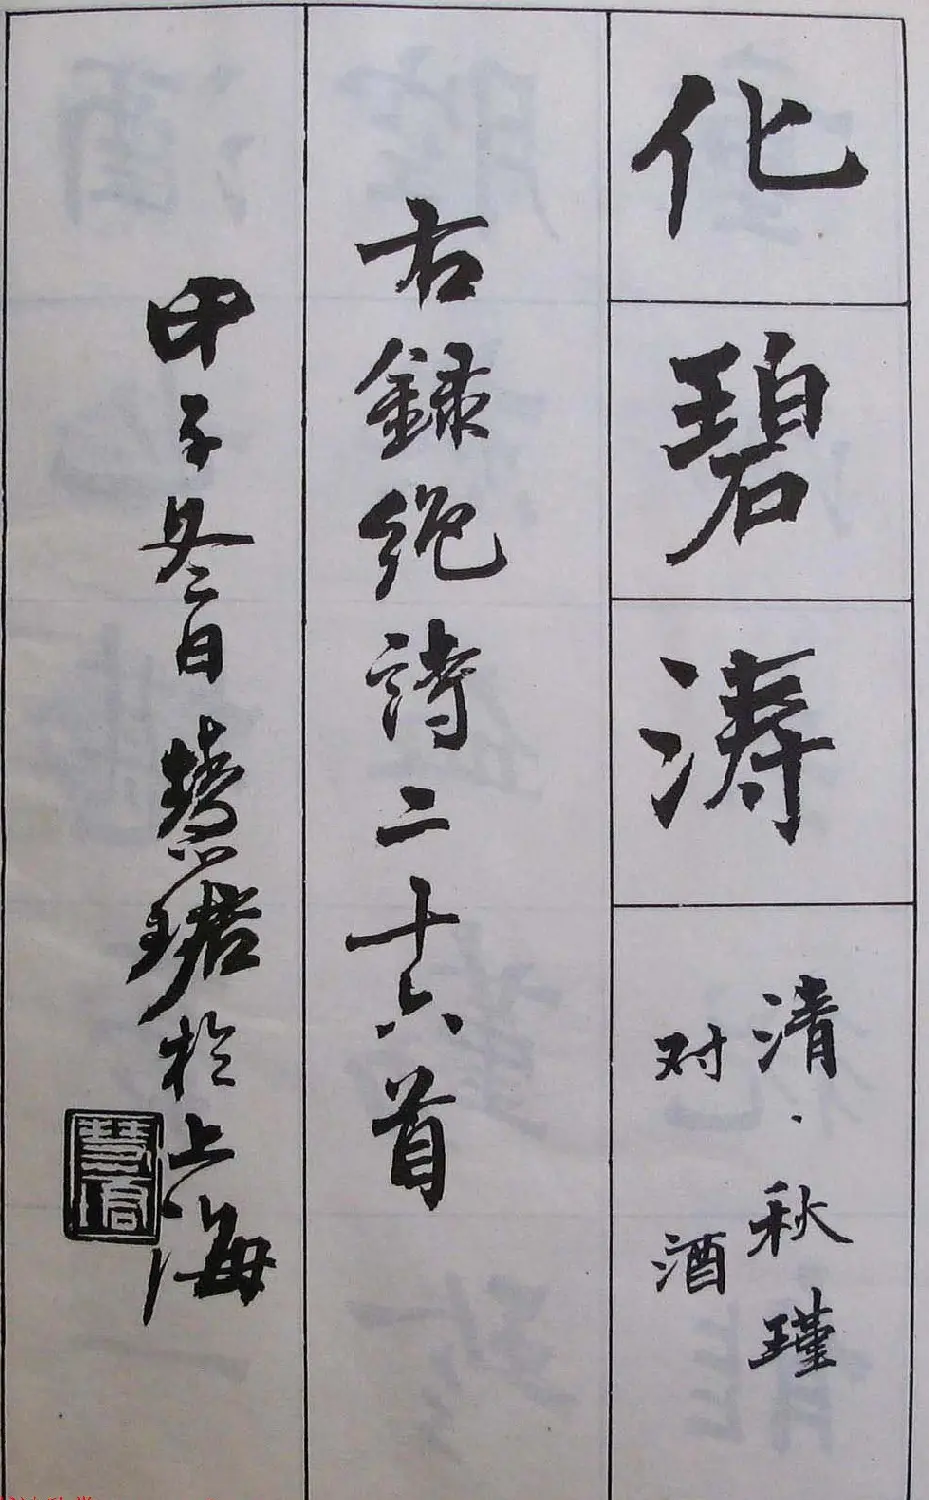 化碧涛
清·秋瑾
对酒
右録绝詩二十六首
甲子冬日慧珺於上海